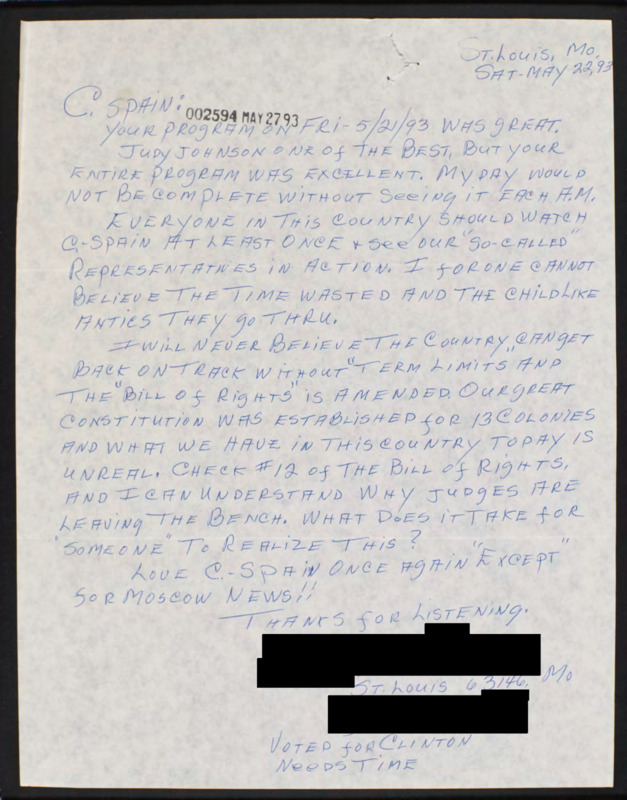 St. Louis, Mo.
SAT-MAY 22, 93
C. SPAIN:
002594 MAY 27 93
YOUR PROGRAM ON FRI-5/21/93 WAS GREAT.
JUDY JOHNSON ONE of THE BEST, BUT YOUR
ENTIRE PROGRAM WAS EXCELLENT. MY DAY WOULD
NOT BE COMPLETE WITHOUT SEEING IT EACH A.M.
EVERYONE IN THIS COUNTRY SHOULD WATCH
C-SPAIN AT LEAST ONCE + SEE OUR "SO-CALLED"
REPRESENTATIVES IN ACTION. I FOR ONE CANNOT
BELIEVE THE TIME WASTED AND THE CHILD LIKE
ANTICS THEY GO THRU.
I WILL NEVER BELIEVE THE COUNTRY CAN GET
BACK ON TRACK WITHOUT "TERM LIMITS" AND
THE "BILL OF RIGHTS" IS AMENDED. OUR GREAT
CONSTITUTION WAS ESTABLISHED FOR 13 COLONIES
AND WHAT WE HAVE IN THIS COUNTRY TODAY IS
UNREAL. CHECK #12 OF THE BILL OF RIGHTS,
AND I CAN UNDERSTAND WHY JUDGES ARE
LEAVING THE BENCH. WHAT DOES IT TAKE FOR
"SOMEONE" TO REALIZE THIS?
LOVE C.-SPAIN ONCE AGAIN "EXCEPT"
FOR MOSCOW NEWS!!
THANKS FOR LISTENING.
ST. LOUIS 63146, MO
VOTED FOR CLINTON
NEEDS TIME